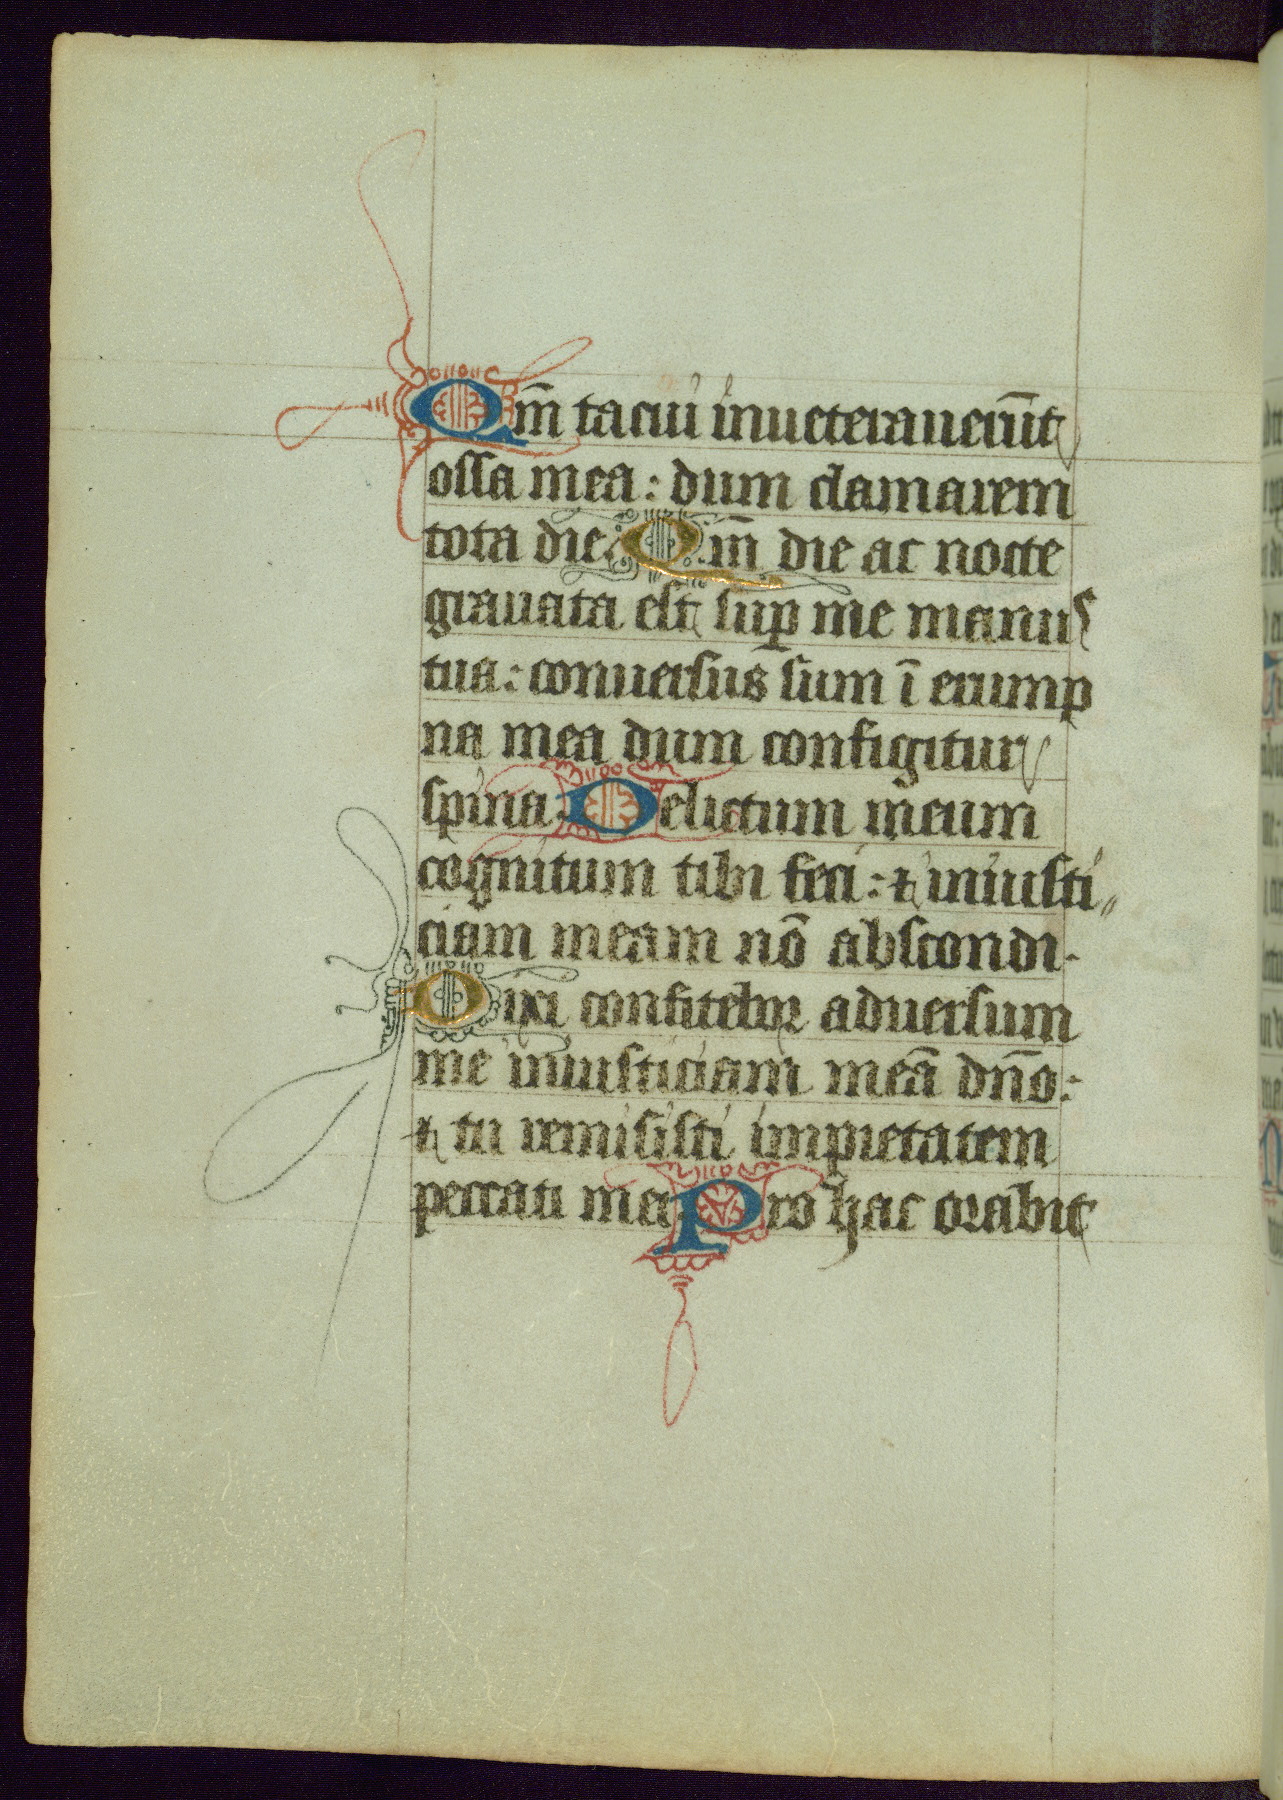 Qm̄ tacui inueterauerūt
ossa mea: dum clamarem
tota die. Qm̄ die ac nocte
grauata est sup̱ me manus
tua: conuersus sum ī erump̱
na mea dum configitur
spina. Delictum meum
cognitum tibi feci: ⁊ iniusti„
ciam meam nō abscondi.
Dixi confitebor aduersum
me iniusticiam meā dn̄o:
⁊ tu remisisti impietatem
peccati mei. Pro hac orabit